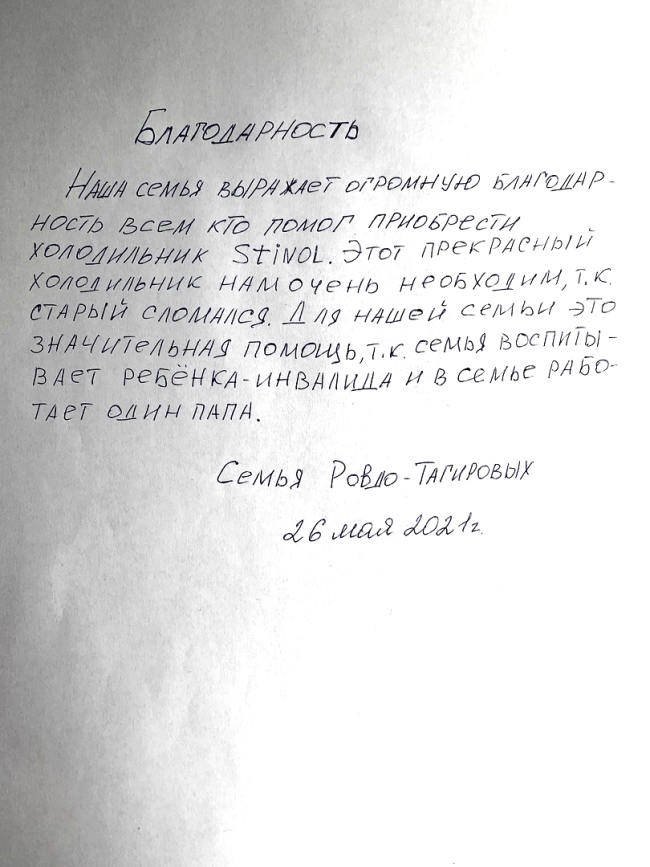 Благодарность
Наша семья выражает огромную благодар-
ность всем кто помог приобрести
холодильник Stinol. Этот прекрасный
холодильник нам очень необходим, т.к.
старый сломался. Для нашей семьи это
значительная помощь, т.к. семья воспиты-
вает ребёнка-инвалида и в семье рабо-
тает один папа.
Семья Ровдо-Тагировых
26 мая 2021г.